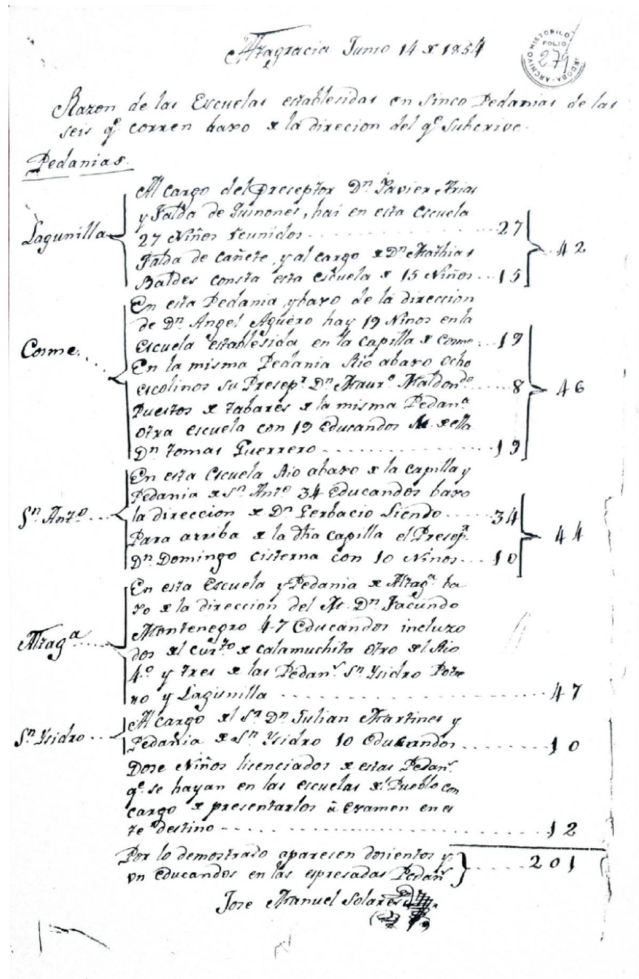 Altagracia Junio 14 de 1834
ARCHIVO HISTORICO
FOLIO
279
Razon de las Escuelas establesidas en sinco Pedanias de las
seis qe corren baxo de la direcion del qe subcrive.
Pedanias.
Lagunilla
Al cargo del Preseptor Dn Xavier Arias
y Falda de Quinones, hai en esta escuela
27 Niños reunidos 27
Falda de Cañete, y al cargo de Dn Mathias
Baldes consta esta escuela de 15 Niños 15
42
Cosme
En esta Pedania y baxo de la direccion
de Dn Angel Aguero hay 19 Ninos en la
Escuela establesida en la capilla de Cosme 19
En la misma Pedania Rio abaxo ocho
escolinos su Presepr Dn Maurо Maldondo 8
Puestos de Tabares de la misma Pedana
otra escuela con 19 Educandos M. de ella
Dn Tomas Guerrero 19
46
Sn Anto
En esta Escuela Rio abaxo de la capilla y
Pedania de Sn Anto 34 Educandos baxo
la direccion de Dn Gerbacio Liendo 34
Para arriba de la dha capilla el Presepr
Dn Domingo Cisterna con 10 Niños 10
44
Altaga
En esta Escuela y Pedania de Altaga ba
xo de la direccion del M. Dn Facundo
Montenegro 47 Educandos incluzo
dos del curto de calamuchita otro del Rio
4o y tres de las Pedans Sn Ysidro Potre
ro y Lagunilla 47
Sn Ysidro
Al cargo del Sr Dn Julian Martines y
Pedania de Sn Ysidro 10 Educandos 10
Dose Niños licenciados de estas Pedans
qe se hayan en las escuelas del Pueblo con
cargo de presentarlos à examen en es
te destino 12
Por lo demostrado aparesen dosientos y
un educandos en las espresadas Pedans 201
Jose Manuel Solares